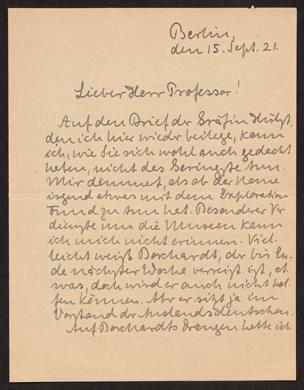 Berlin,
den 15. Sept. 21.
Lieber Herr Professor!
Auf den Brief der Gräfin
den ich hier wieder beilege, kann
ich, wie Sie sich wohl auch gedacht
haben, nicht das Geringste tun.
Mir dämmert, als ob der Name
irgend etwas mit dem Exploration
Fund zu tun hat. Besonderer Ver-
dienste um die Museen kann
ich mich nicht erinnern. Viel-
leicht weiß Borchardt, der bis En-
de nächster Woche verreist ist, et-
was, doch wird er auch nicht hel-
fen können. Aber er sitzt ja im
Vorstand der Auslandsdeutschen.
Auf Borchardts Drängen hatte ich